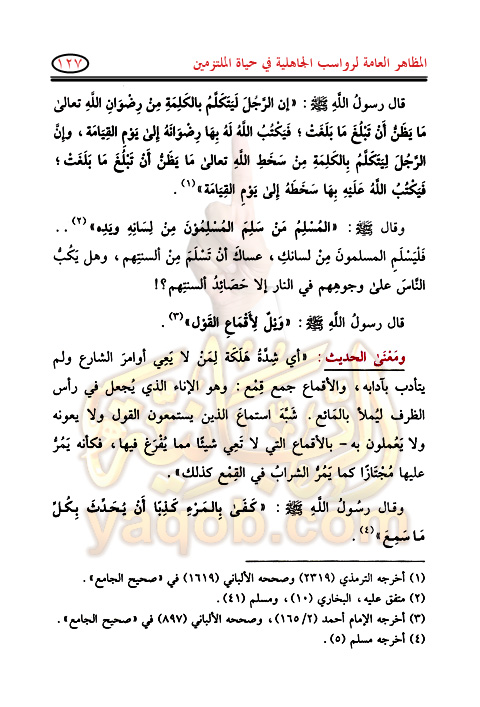 المظاهر العامة لرواسب الجاهلية في حياة الملتزمين
١٢٧
قال رسولُ اللَّهِ ﷺ : «إن الرَّجُلَ لَيَتَكَلَّمُ بِالكَلِمَةِ مِنْ رِضْوَانِ اللَّهِ تعالىٰ
مَا يَظُنُّ أَنْ تَبْلُغَ مَا بَلَغَتْ ؛ فَيَكْتُبُ اللَّهُ لَهُ بِهَا رِضْوَانَهُ إِلىٰ يَوْمِ القِيَامَةِ ، وإنَّ
الرَّجُلَ لِيَتَكَلَّمُ بِالكَلِمَةِ مِنْ سَخَطِ اللَّهِ تعالىٰ مَا يَظُنُّ أَنْ تَبْلُغَ مَا بَلَغَتْ ؛
فَيَكْتُبُ اللَّهُ عَلَيْهِ بِهَا سَخَطَهُ إِلىٰ يَوْمِ القِيَامَةِ» (١) .
وقال ﷺ : «المُسْلِمُ مَنْ سَلِمَ المُسْلِمُوْنَ مِنْ لِسَانِهِ ويَدِهِ» (٢) . .
فَلْيَسْلَمِ المسلمونَ مِنْ لسانكِ ، عساكَ أَنْ تَسْلَمَ مِنْ ألسنتِهم ، وهل يَكُبُّ
النَّاسَ علىٰ وجوهِهم في النار إلا حَصَائِدُ ألسنتِهم ؟!
قال رسولُ اللَّهِ ﷺ : «وَيْلٌ لِأَقْمَاعِ القَوْلِ» (٣) .
ومَعْنَىٰ الحديث : «أي شِدَّةُ هَلَكَة لِمَنْ لا يَعِي أوامرَ الشارع ولم
يتأدب بآدابه ، والأقماع جمع قِمْع : وهو الإناء الذي يُجعل في رأس
الظرف ليُملأ بالمَائع . شَبَّهَ استماعَ الذين يستمعون القول ولا يعونه
ولا يَعْملون به – بالأقماع التي لا تَعِي شيئًا مما يُفْرَغ فيها ، فكأنه يَمُرُّ
عليها مُجْتَازًا كما يَمُرُّ الشرابُ في القِمْع كذلك» .
وقال رسُولُ اللَّهِ ﷺ : «كَفَىٰ بِالمَرْءِ كَذِبًا أَنْ يُحَدِّثَ بِكُلِّ
مَا سَمِعَ» (٤) .
(١) أخرجه الترمذي (٢٣١٩) وصححه الألباني (١٦١٩) في «صحيح الجامع» .
(٢) متفق عليه ، البخاري (١٠) ، ومسلم (٤١) .
(٣) أخرجه الإمام أحمد (١٦٥/٢) ، وصححه الألباني (٨٩٧) في «صحيح الجامع» .
(٤) أخرجه مسلم (٥) .
yaqob.com